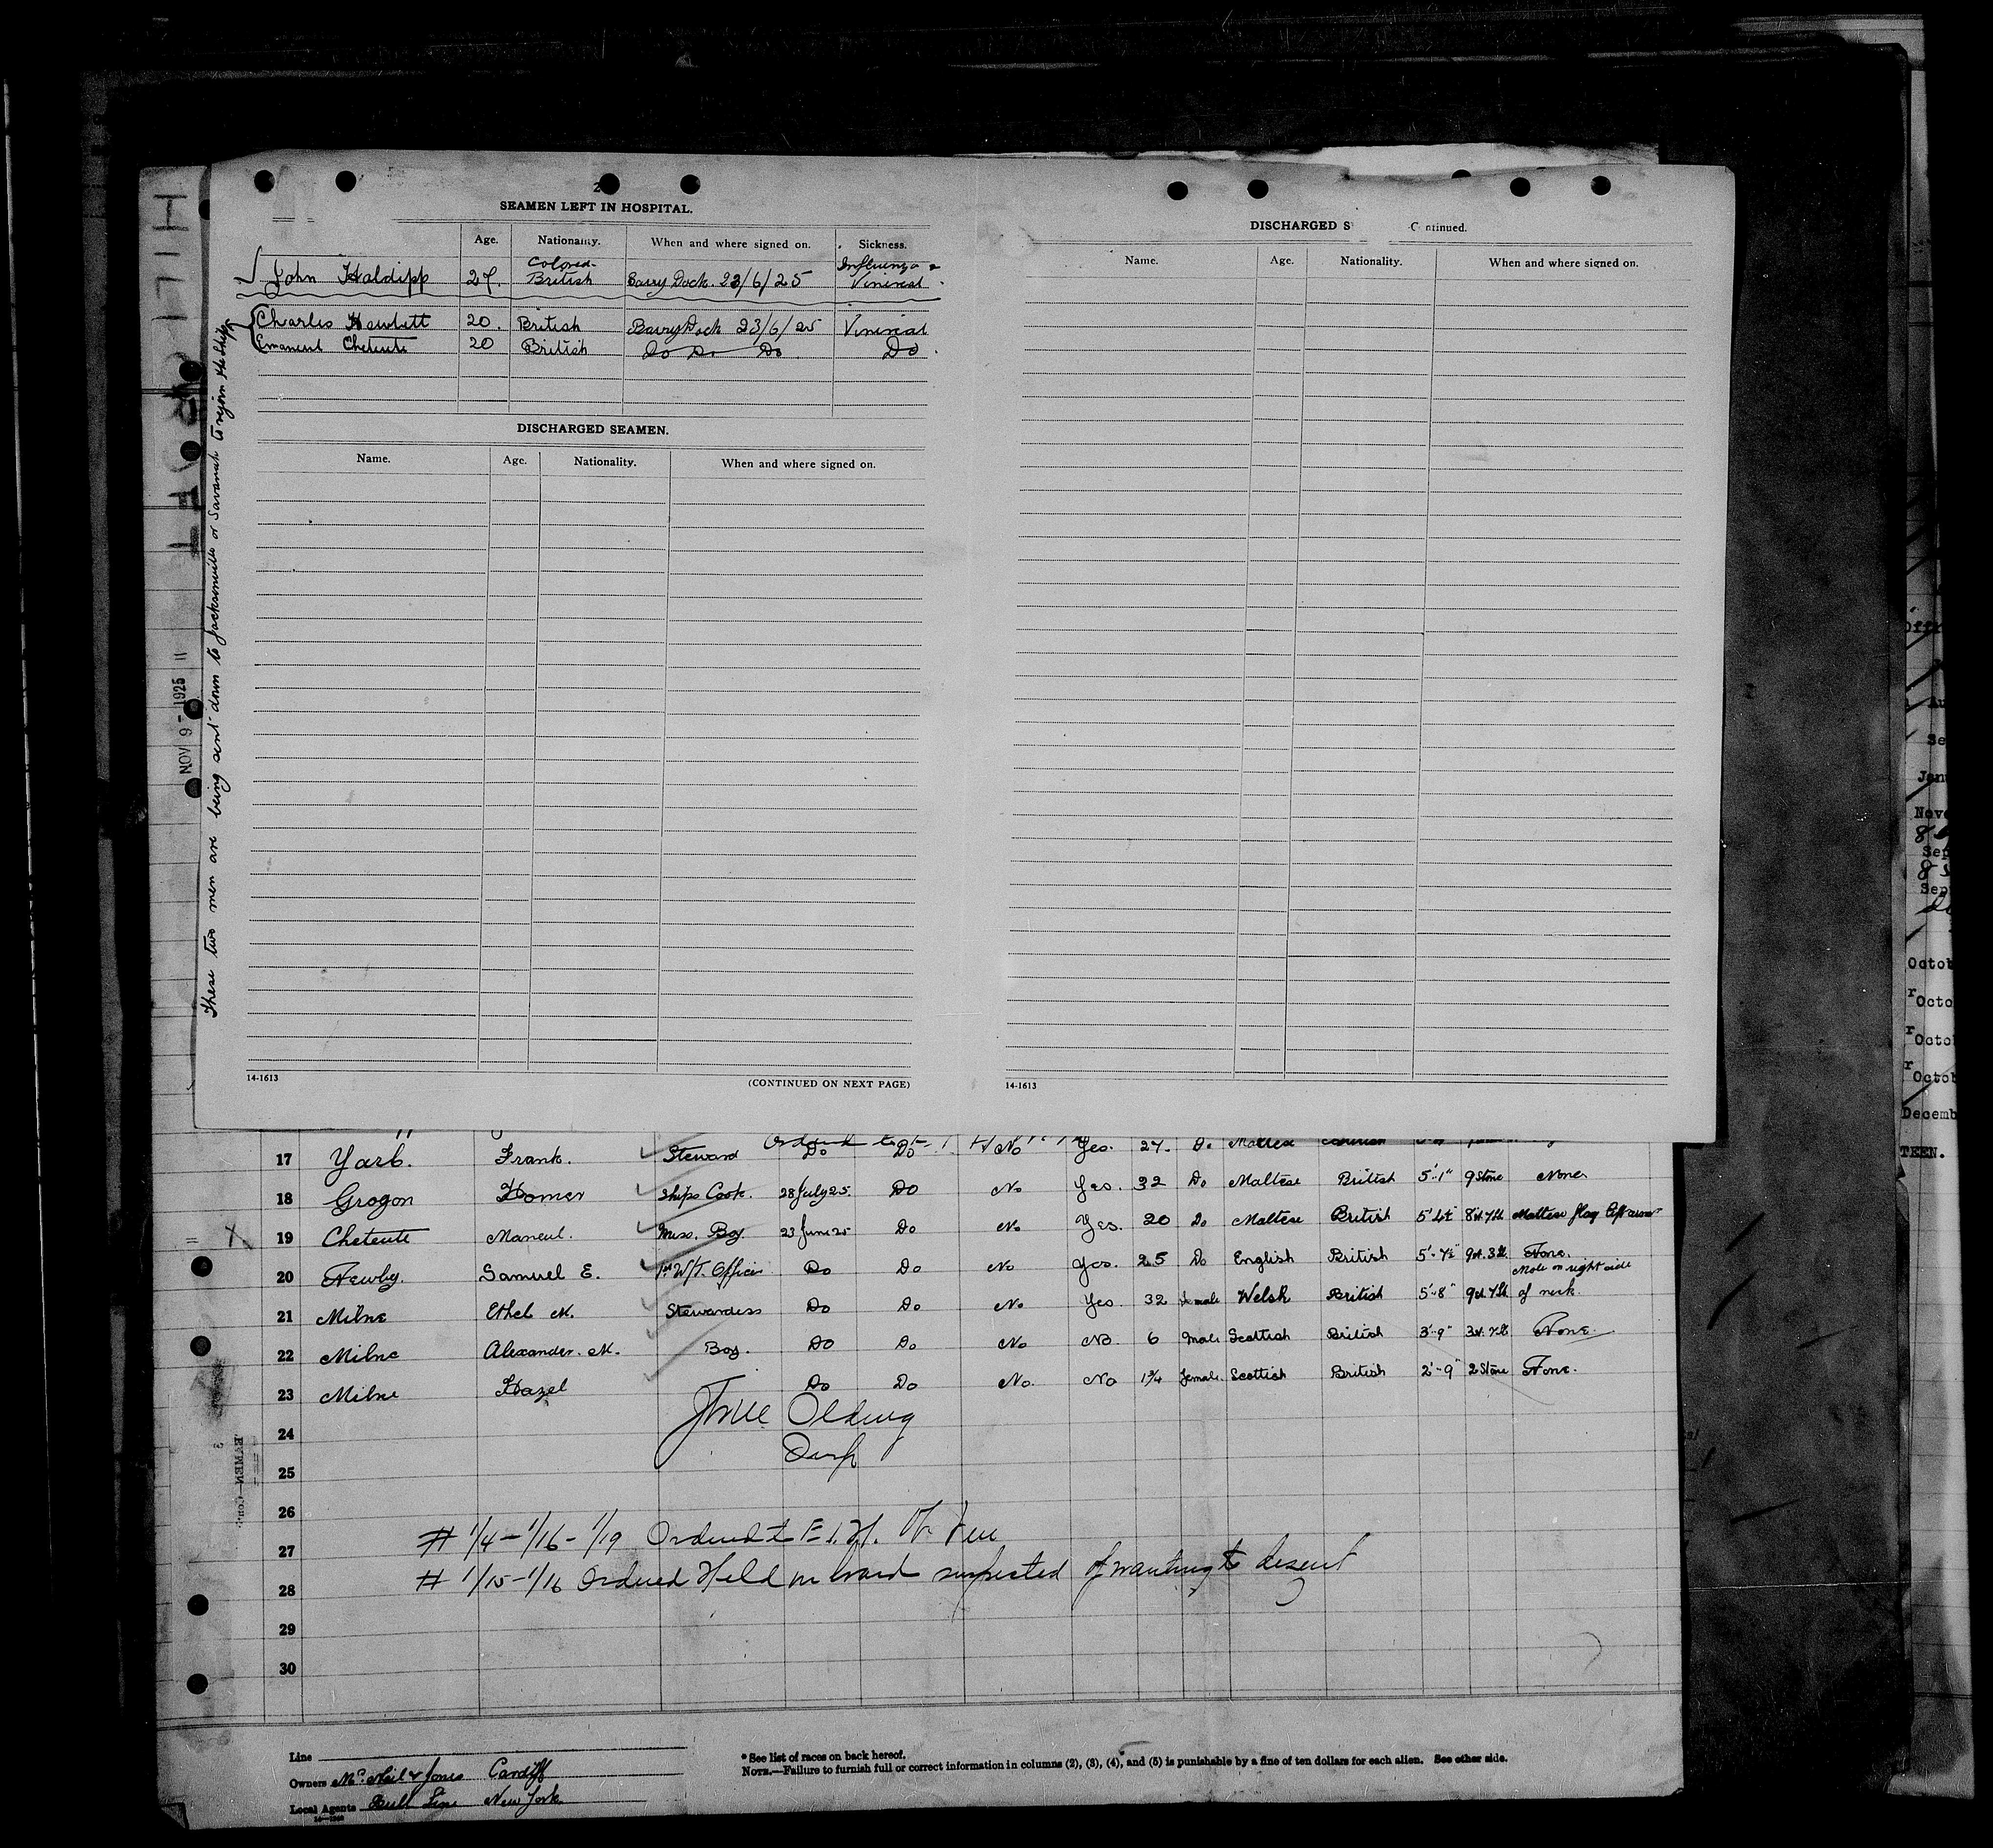 SEAMEN LEFT IN HOSPITAL.
Age. Nationality. When and where signed on. Sickness.
John Haldipp 27. Colored British Barry Dock. 23/6/25 Influenza & Vinireal
Charles Hewlett 20. British Barry Dock 23/6/25 Vinireal
Emanuel Cheteute 20 British Do Do Do Do.
These two men are being sent down to Jacksonville or Savanah to rejoin
NOV 9 - 1925
DISCHARGED SEAMEN.
Name. Age. Nationality. When and where signed on.
14-1613 (CONTINUED ON NEXT PAGE)
DISCHARGED S Continued.
Name. Age. Nationality. When and where signed on.
14-1613
17 Yarb. Frank. Steward Do Do No Yes. 27. Do Maltese
18 Grogon Homer Ships Cook. 28 July 25. Do No Yes. 32 Do Maltese British 5'-1" 9 Stone None
19 Cheteute Maneul. Mess. Boy. 23 June 25 Do No Yes. 20 Do Maltese British 5'4½" 8st.7lb Maltese flag left arm
20 Newby. Samuel E. 1st W/T. Officer Do Do No Yes. 25 Do English British 5'-7½" 9st.3lb None.
21 Milne Ethel M. Stewardess Do Do No Yes 32 Female Welsh British 5'-8" 9st 7lb Mole on right side of neck.
22 Milne Alexander. M. Boy. Do Do No No. 6 Male Scottish British 3'-9" 3st.7lb None.
23 Milne Hazel Do Do No. No 1¾ Female. Scottish British 2'-9" 2 Stone None.
24
25
26
27
28
29
30
# 1/4 - 1/16 - 1/19 Ordered to E.I.H.
# 1/15 - 1/16 Ordered Held on board suspected of wanting to desert
Line
Owners McNeil & Jones Cardiff
Local Agents Bull Line New York
* See list of races on back hereof.
NOTE.—Failure to furnish full or correct information in columns (2), (3), (4), and (5) is punishable by a fine of ten dollars for each alien. See other side.
Octob
Octo
Octo
Octob
Decemb
TEEN.